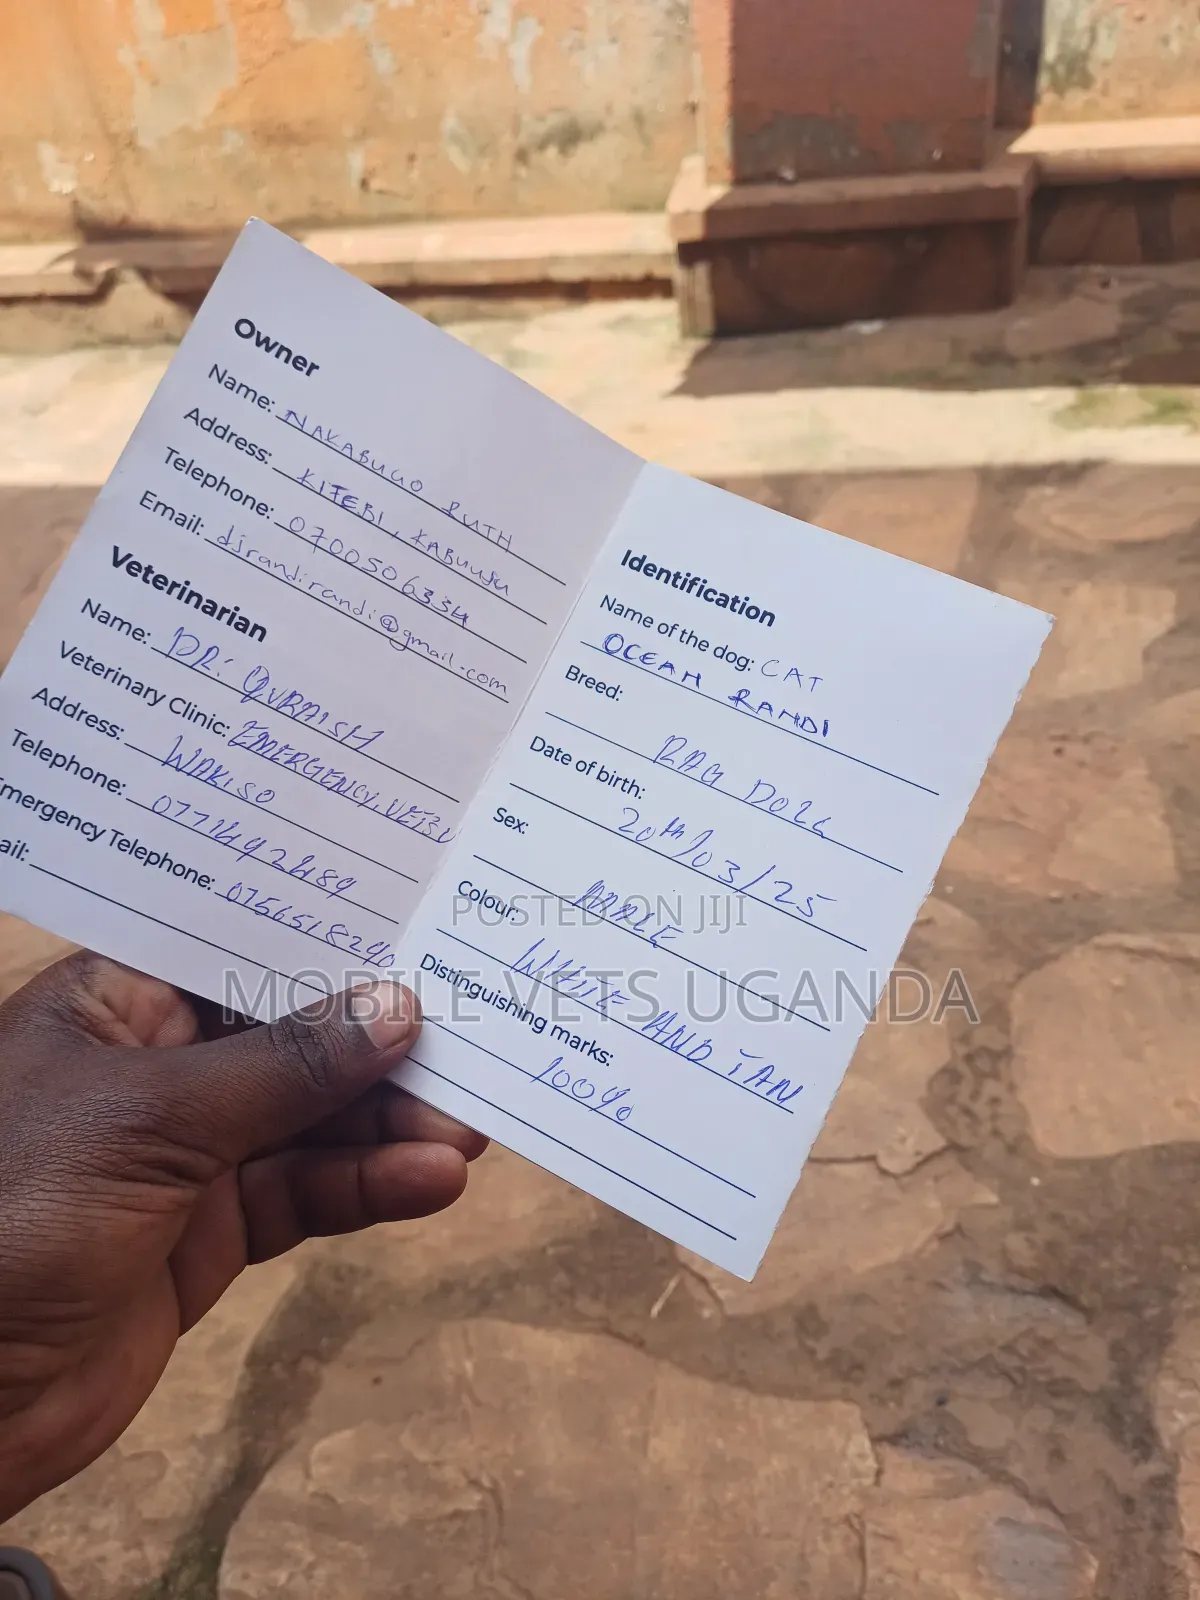 Owner
Name: NAKABUGO RUTH
Address: KITEBI, KABUUSU
Telephone: 0700506334
Email: djrandirandi@gmail.com
Veterinarian
Name: DR: QURAISH
Veterinary Clinic: EMERGENCY.VETS U
Address: WAKISO
Telephone: 0771492489
Emergency Telephone: 0756518240
ail:
Identification
Name of the dog: CAT
OCEAN RANDI
Breed:
RAG DOLL
Date of birth:
20th/03/25
Sex:
Colour:
WHITE AND TAN
Distinguishing marks:
100%
POSTED ON JIJI
MOBILE VETS UGANDA